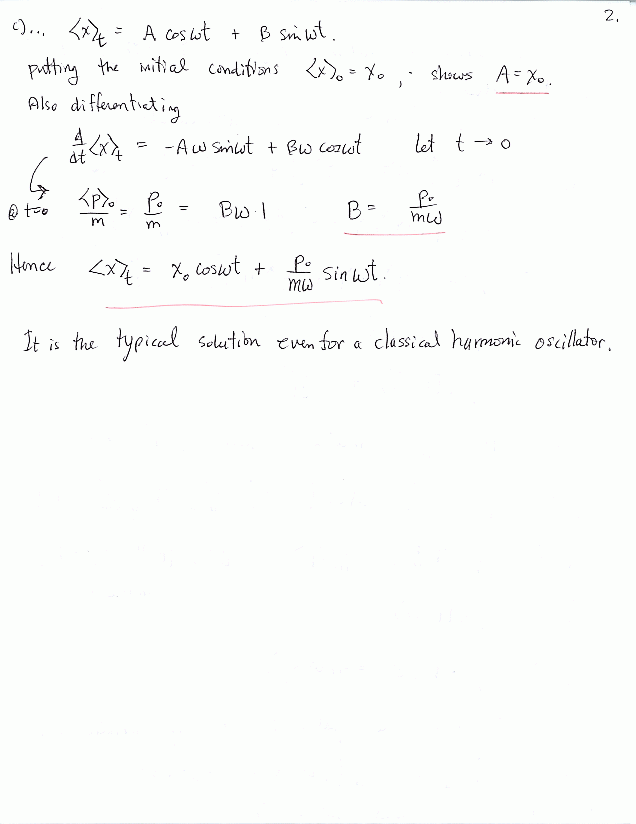 2.
c)... <x>t = A cosωt + B sinωt.
putting the initial conditions <x>₀ = x₀, shows A = x₀.
Also differentiating
d/dt <x>t = -Aω sinωt + Bω cosωt let t → 0
@ t=0 <p>₀/m = p₀/m = Bω·1 B = p₀/mω
Hence <x>t = x₀ cosωt + p₀/mω sinωt.
It is the typical solution even for a classical harmonic oscillator.